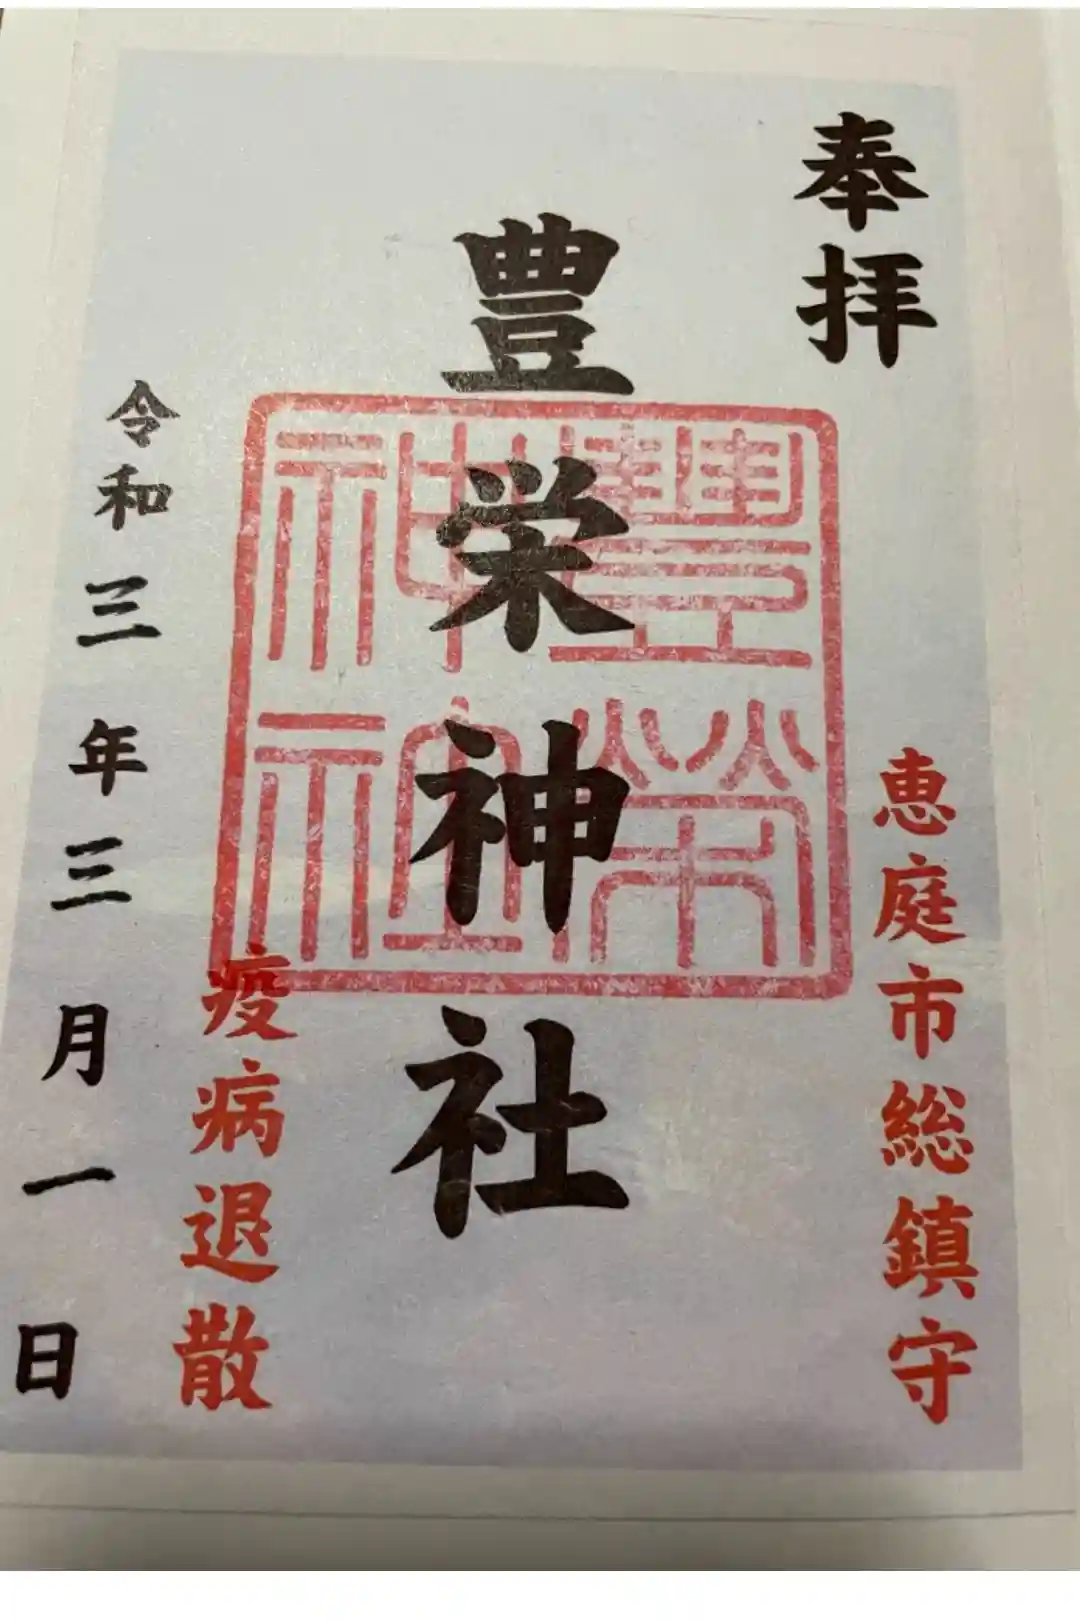 奉拝
恵庭市総鎮守
豊栄神社
豊榮
神社
疫病退散
令和三年三月一日